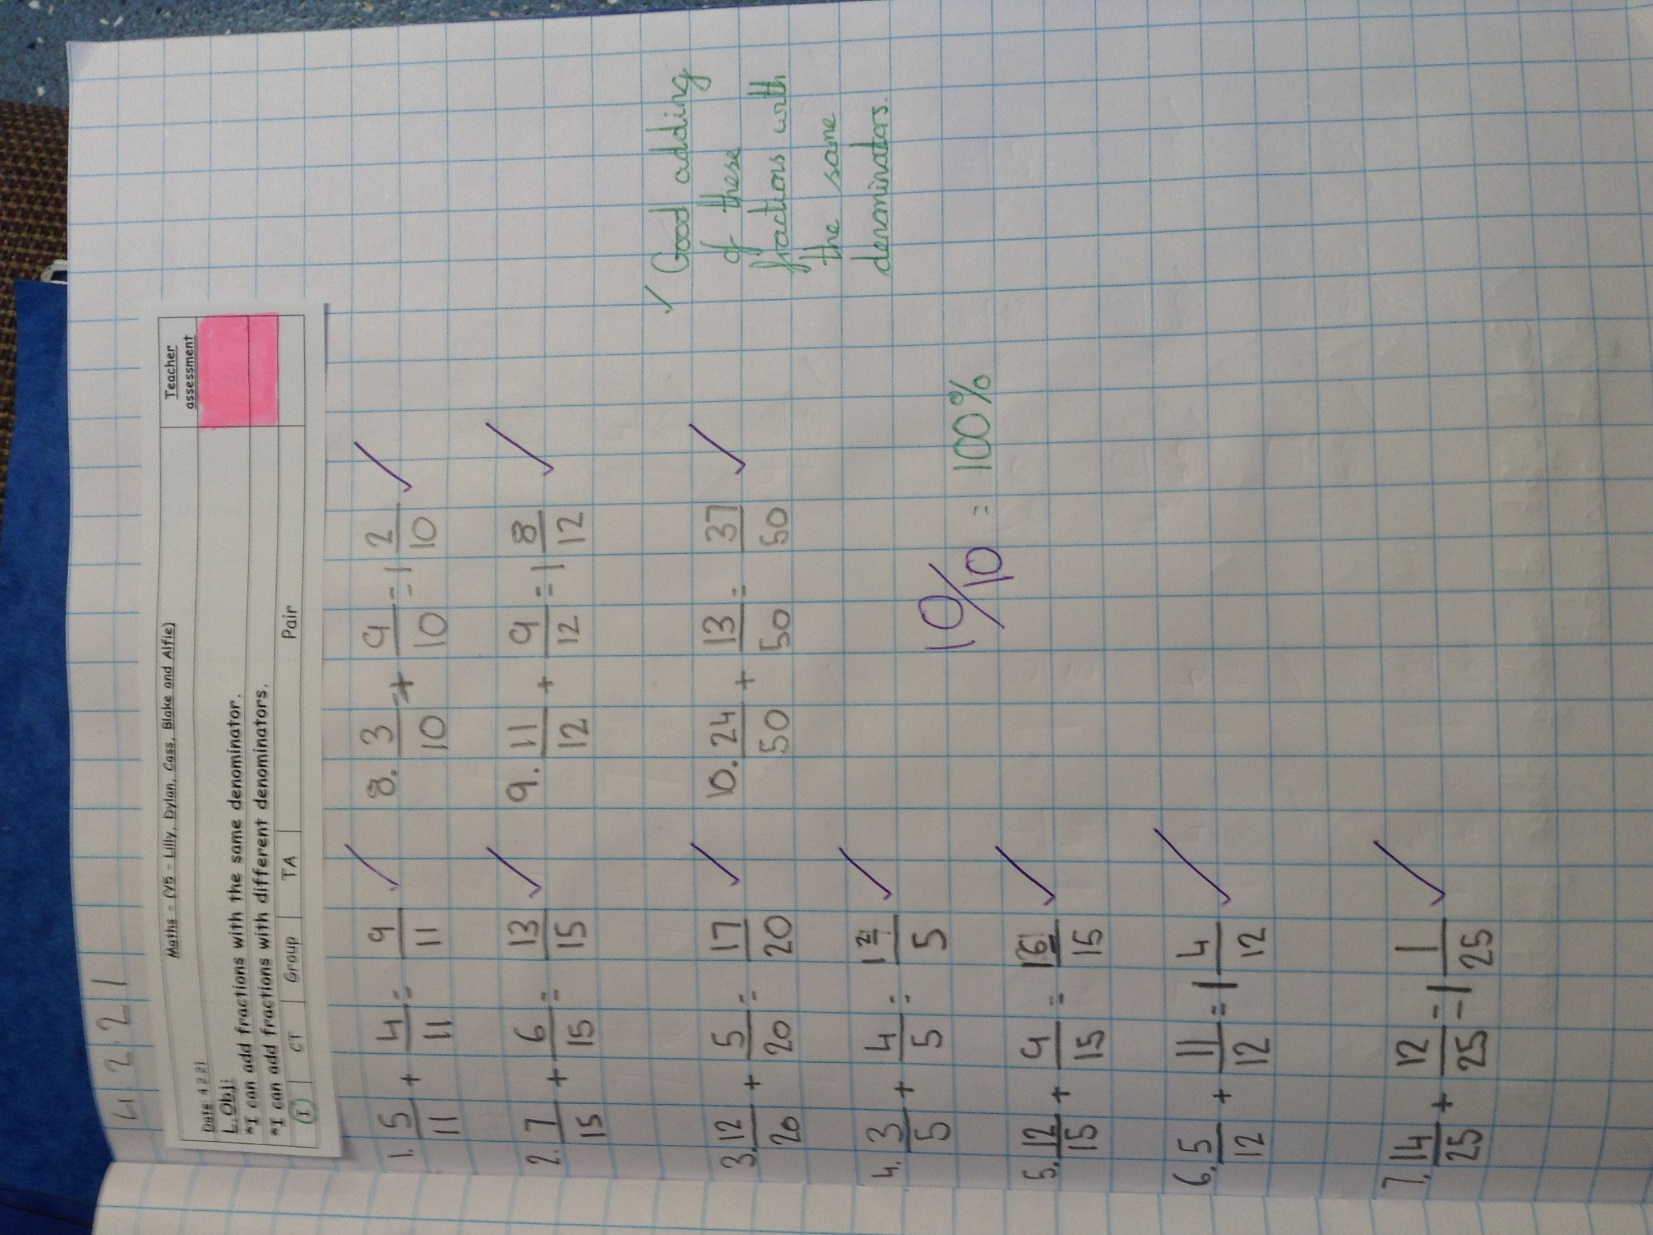 4.2.21
Maths - (Y5 - Lilly, Dylan, Cass, Blake and Alfie)
Date 4.2.21
L.Obj:
*I can add fractions with the same denominator.
*I can add fractions with different denominators.
Teacher assessment
I CT Group TA Pair
1. 5/11 + 4/11 = 9/11 ✓
2. 7/15 + 6/15 = 13/15 ✓
3. 12/20 + 5/20 = 17/20 ✓
4. 3/5 + 4/5 = 1 2/5 ✓
5. 12/15 + 4/15 = 16/15 ✓
6. 5/12 + 11/12 = 1 4/12 ✓
7. 14/25 + 12/25 = 1 1/25 ✓
8. 3/10 + 9/10 = 1 2/10 ✓
9. 11/12 + 9/12 = 1 8/12 ✓
10. 24/50 + 13/50 = 37/50 ✓
10/10 = 100%
✓ Good adding
of these
fractions with
the same
denominators.